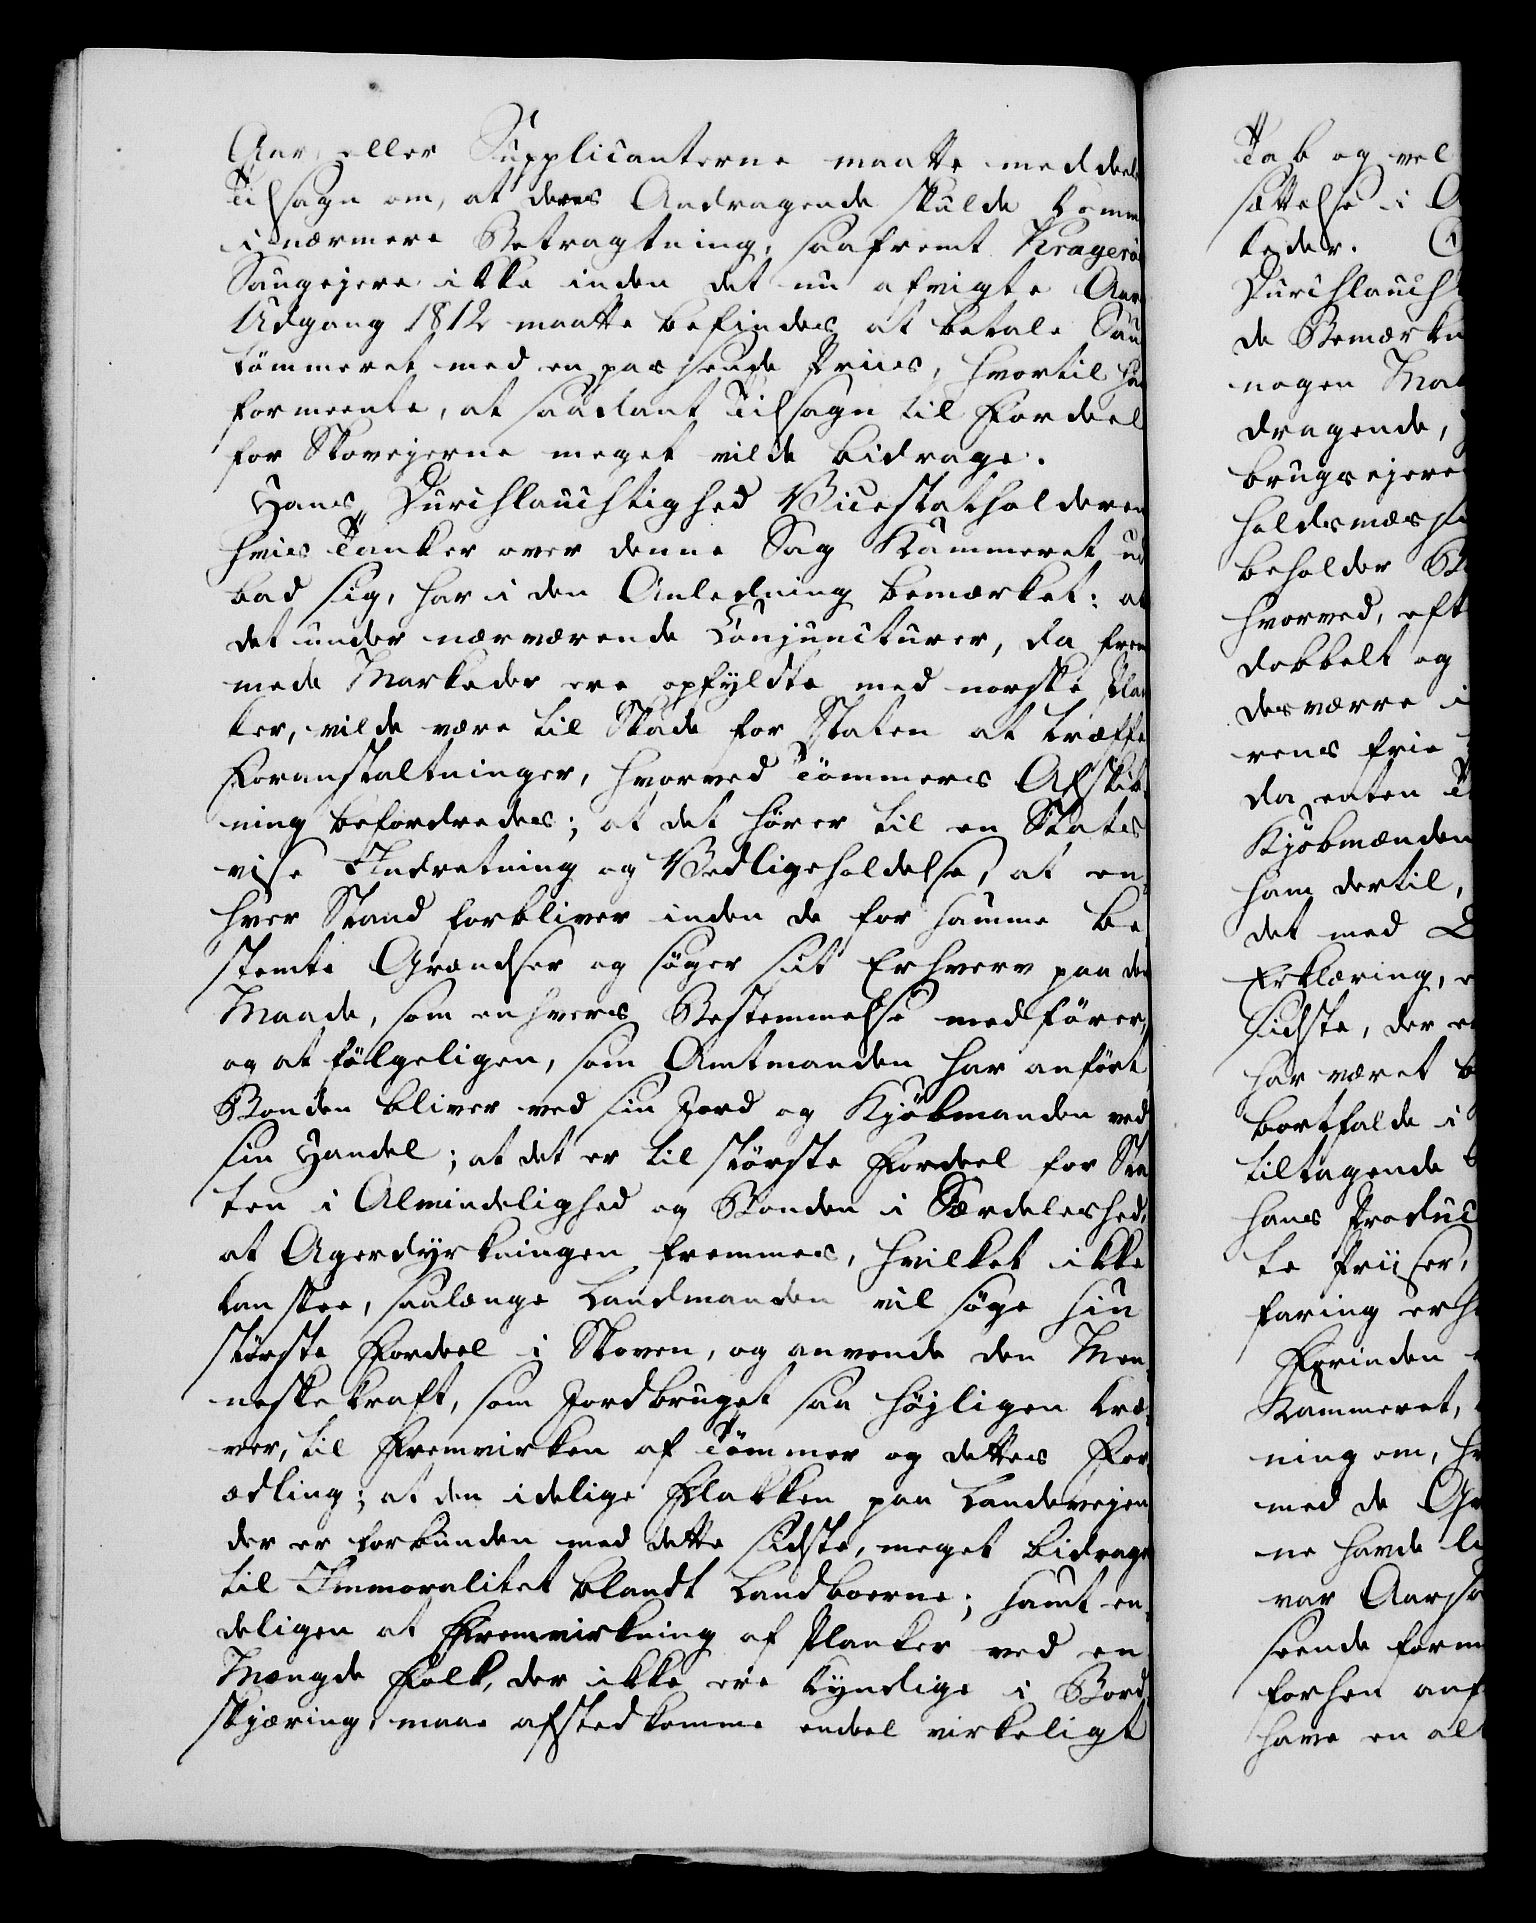 Aar, eller Supplicanterne maatte meddeele
Tilsagn om, at deres Andragende skulde komme
i nærmere Betragtning, saafremt Kragerø
Saugejere ikke inden det nu afvigte Aars
Udgang 1812 maatte befindes at betale Sau
tømmeret med en passende Priis, hvortil han
formeente, at saadant Tilsagn til Fordeel
for Skovejerne meget vilde bidrage.
Hans Durchlauchtighed Vicestatholderen
hvis Tanker over denne Sag Kammeret ud
bad sig, har i den Anledning bemærket: at
det under nærværende Conjuncturer, da frem
mede Markeder ere opfyldte med norske Plan
ker, vilde være til Skade for Staten at træffe
Foranstaltninger, hvorved Tømmerets Afskib
ning befordredes; at det hører til en Stats
vise Indretning og Vedligeholdelse, at en
hver Stand forbliver inden de for samme be
stemte Grændser og søger sit Erhverv paa den
Maade, som enhvers Bestemmelse medfører,
og at følgeligen, som Amtmanden har anført
Bonden bliver ved sin Jord og Kjøbmanden ved
sin Handel; at det er til største Fordeel for Sta
ten i Almindelighed og Bonden i Særdeleshed,
at Agerdyrkningen fremmes, hvilket ikke
kan skee, saalænge Landmanden vil søge sin
største Fordeel i Skoven, og anvende den Men
neskekraft, som Jordbruget saa højligen kræ
ver, til Fremvirken af Tømmer og dettes For
ædling; at den idelige Flakken paa Landevejen
der er forbunden med dette sidste, meget bidrage
til Immoralitet blandt Landboerne; samt en
deligen at Fremvirkning af Planker ved en
Mængde Folk, der ikke ere kyndige i Bord
skjæring, maae afstedkomme endeel virkeligt
Tab og vel
sættelse i
keder.
Durchlaucht
de Bemærkn
nogen
dragende,
brugsejere
holdsmæssi
beholder
hvorved, eft
dobbelt og
desværre i
rens frie
da enten
Kjøbmanden
ham dertil,
det med
Erklæring,
sidste, der
har været
bortfalde i
tiltagende
hans Produc
te Priiser,
faring erh
Forinden
Kammeret,
ning om,
med de
ne havde
var
seende form
forhen anf
have en alt